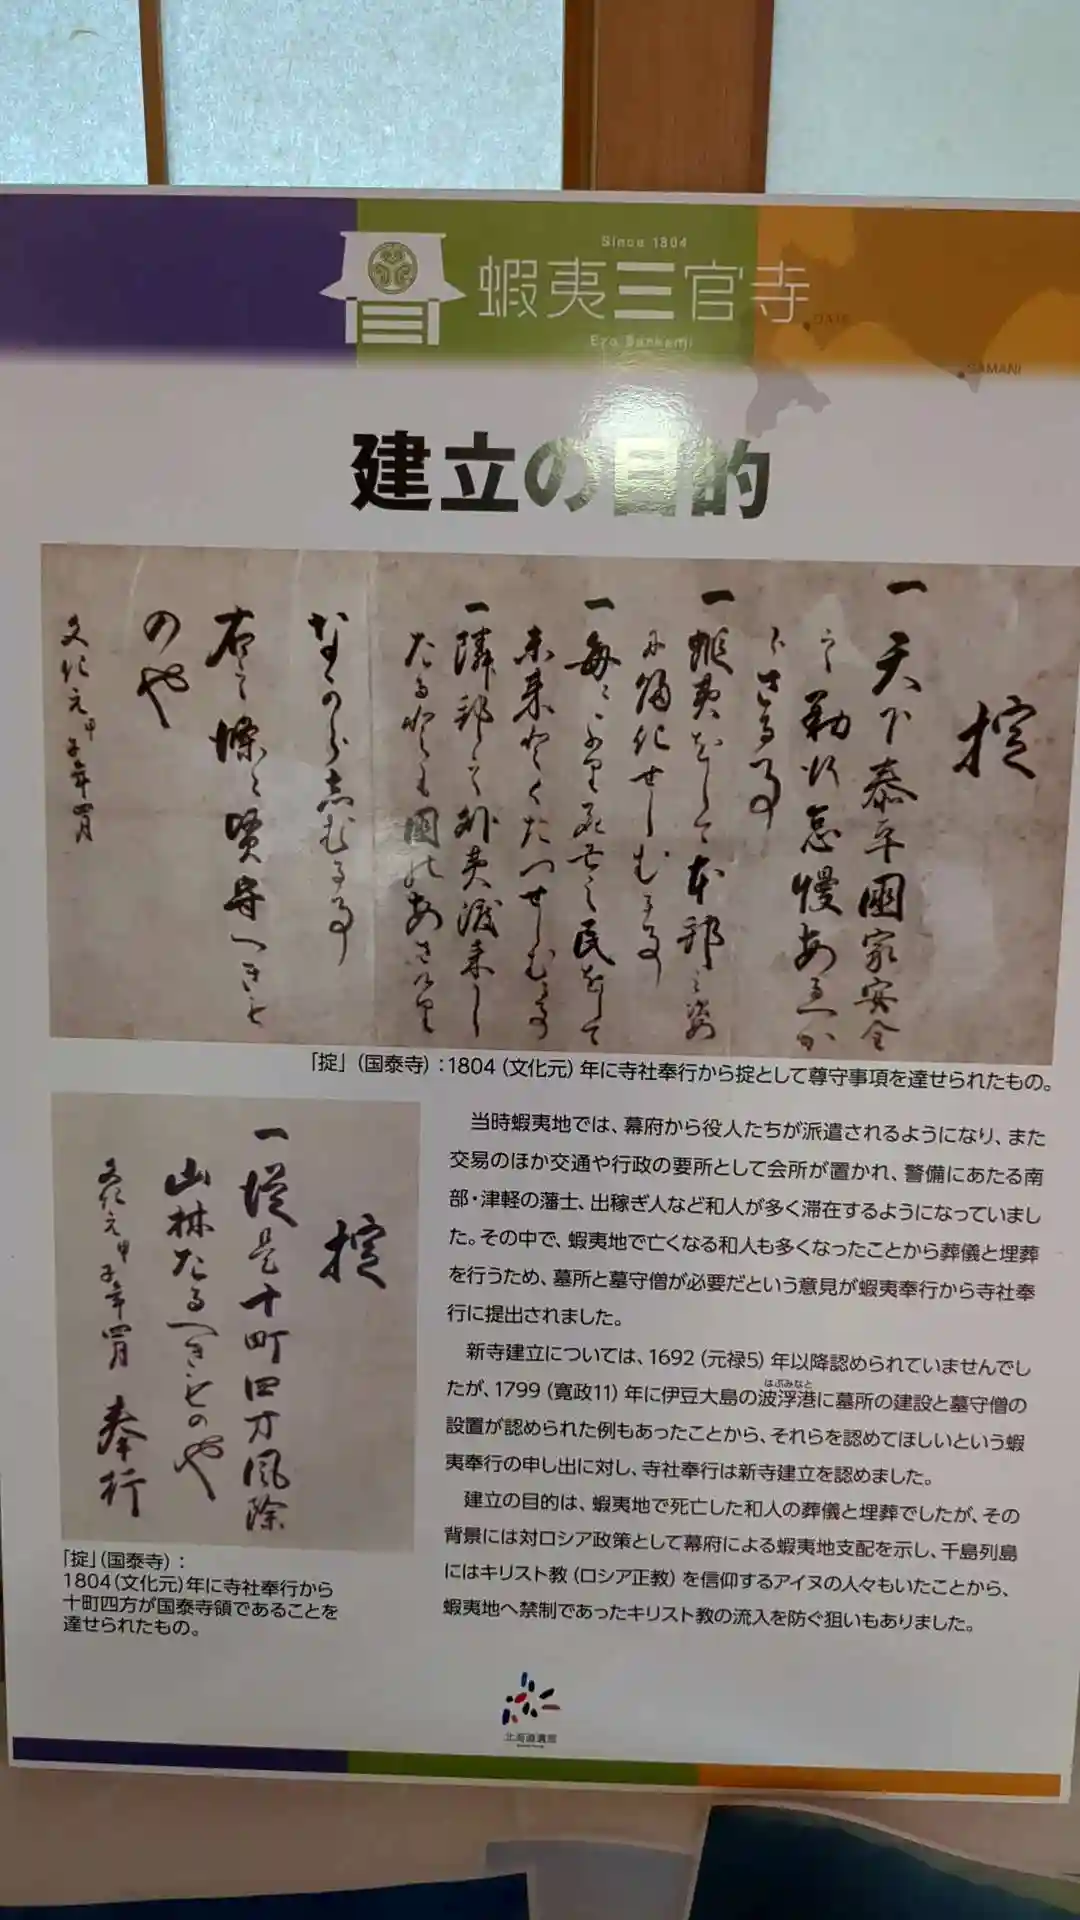 Since 1804
蝦夷三官寺
Ezo Sankanji
DATE
SAMANI
建立の目的
掟
一天下泰平國家安全
之勤行怠慢あるへか
らさる事
一蝦夷をして本邦之姿
に帰化せしむる事
民をして
一隣邦
外夷渡来し
たる
國
なからしむる事
右之條々堅守へきも
のや
文化元甲子年四月
「掟」（国泰寺）：1804（文化元）年に寺社奉行から掟として尊守事項を達せられたもの。
掟
一從是十町四方風除
山林たるへきものや
文化元甲子年四月 奉行
「掟」（国泰寺）：
1804（文化元）年に寺社奉行から
十町四方が国泰寺領であることを
達せられたもの。
当時蝦夷地では、幕府から役人たちが派遣されるようになり、また
交易のほか交通や行政の要所として会所が置かれ、警備にあたる南
部・津軽の藩士、出稼ぎ人など和人が多く滞在するようになっていまし
た。その中で、蝦夷地で亡くなる和人も多くなったことから葬儀と埋葬
を行うため、墓所と墓守僧が必要だという意見が蝦夷奉行から寺社奉
行に提出されました。
新寺建立については、1692（元禄5）年以降認められていませんでし
はぶみなと
たが、1799（寛政11）年に伊豆大島の波浮港に墓所の建設と墓守僧の
設置が認められた例もあったことから、それらを認めてほしいという蝦
夷奉行の申し出に対し、寺社奉行は新寺建立を認めました。
建立の目的は、蝦夷地で死亡した和人の葬儀と埋葬でしたが、その
背景には対ロシア政策として幕府による蝦夷地支配を示し、千島列島
にはキリスト教（ロシア正教）を信仰するアイヌの人々もいたことから、
蝦夷地へ禁制であったキリスト教の流入を防ぐ狙いもありました。
北海道遺産